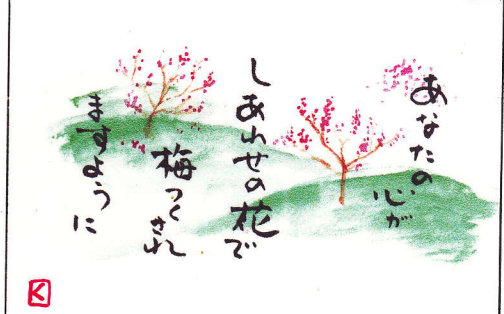 あなたの
心が
しあわせの花で
梅つくされ
ますように
K